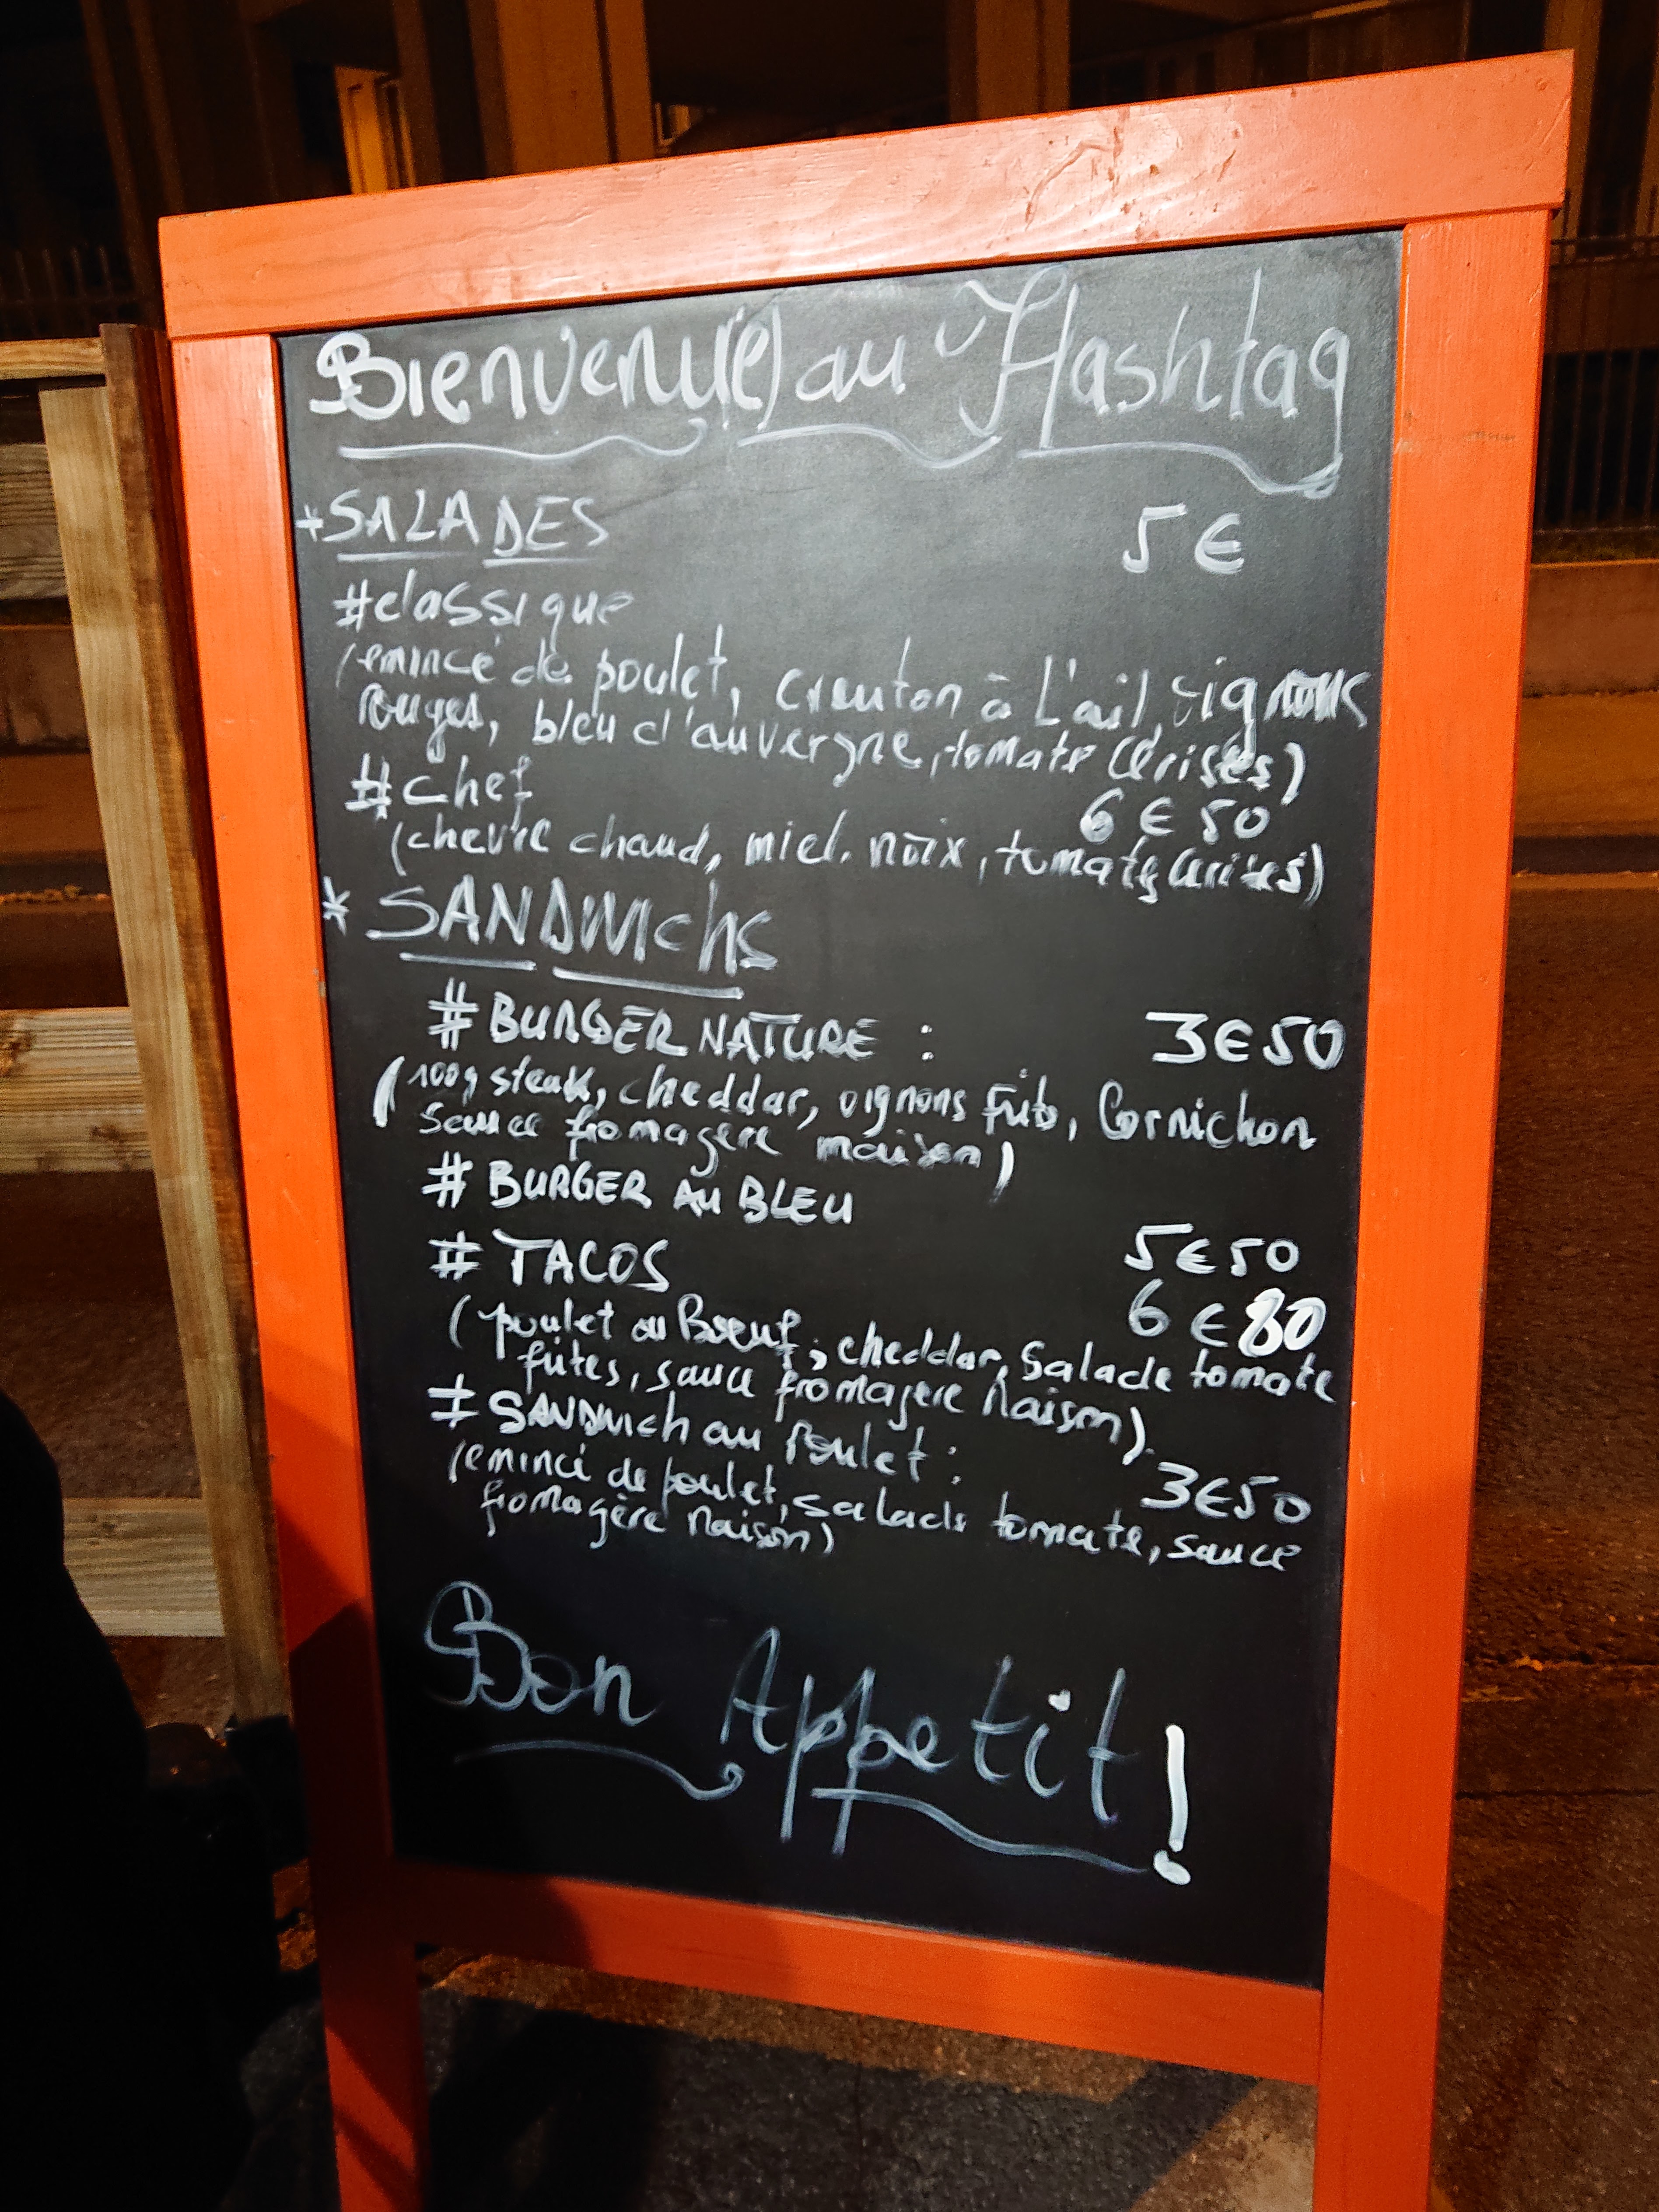 Bienvenu(e) au Hashtag
* SALADES 5 €
#classique
(emincé de poulet, crouton à L'ail, oignons
rouges, bleu d'auvergne, tomate cérises)
#chef 6 € 50
(chevre chaud, miel, noix, tomate cerises)
* SANDWIchs
# BURGER NATURE : 3€50
(100g steak, cheddar, oignons frits, Cornichon
sauce fromagère maison)
# BURGER AU BLEU
5€50
# TACOS
6 €80
(poulet ou Boeuf, cheddar, Salade tomate
frites, sauce fromagère Maison)
# SANDWich au Poulet :
3€50
(emincé de poulet, salade tomate, sauce
fromagère Maison)
Bon Appetit!